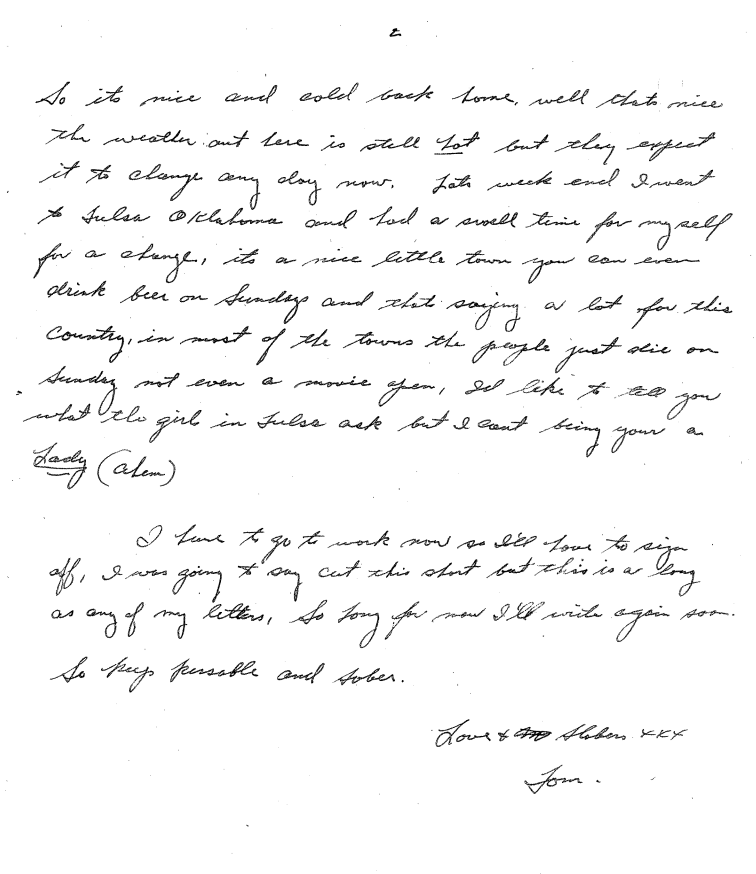 2
So its nice and cold back home, well thats nice
the weather out here is still hot but they expect
it to change any day now. Lats week end I went
to Tulsa Oklahoma and had a swell time for my self
for a change, its a nice little town you can even
drink beer on Sundays and thats saying a lot for this
country, in most of the towns the people just die on
Sunday not even a movie open, I'd like to tell you
what the girls in Tulsa ask but I cant being your a
Lady (ahem)
I have to go to work now so I'll have to sign
off, I was going to say cut this short but this is a long
as any of my letters, So long for now I'll write again soon.
So keep kissable and sober.
Love & Slobers xxx
Tom.